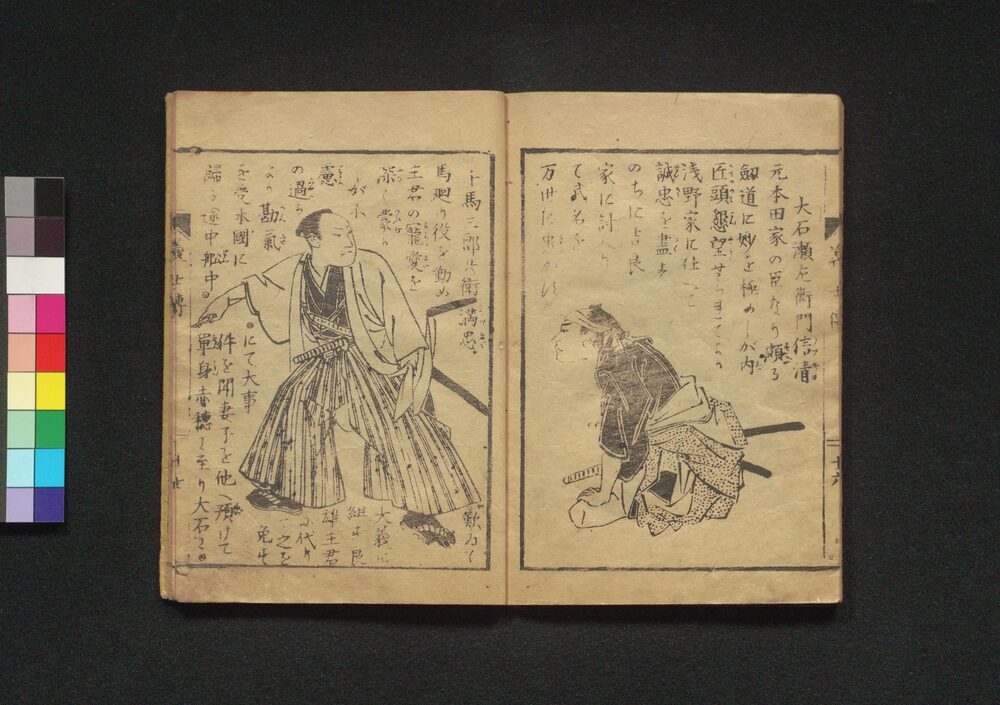 大石瀬左衛門信清
元本田家の臣なり頗る
剱道に妙を極めしが内
匠頭懇望せられて
浅野家に仕へ
誠忠を盡す
のちに吉良
家に討入り
て武名を
万世に
十六
千馬三郎兵衛満忠
馬廻り役を勤め
主君の寵愛を
深く蒙り
が不
慮
の過ち
より勘氣
を受本國に
歸る途中船中
にて大事
件を聞妻子を他へ預けて
單身赤穗に至り大石
歎ゐて
大義に
組す良
雄主君
に代り
之を
免す
義士傳